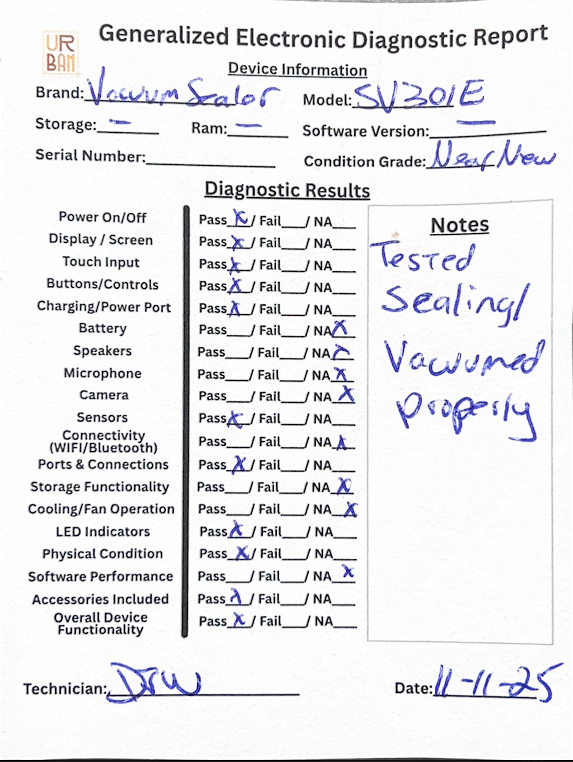 UR
BAN
Generalized Electronic Diagnostic Report
Device Information
Brand: Vacuum Sealor Model: SV301E
Storage: — Ram: — Software Version: —
Serial Number: Condition Grade: Near New
Diagnostic Results
Power On/Off Pass X / Fail / NA
Display / Screen Pass X / Fail / NA
Touch Input Pass X / Fail / NA
Buttons/Controls Pass X / Fail / NA
Charging/Power Port Pass X / Fail / NA
Battery Pass / Fail / NA X
Speakers Pass / Fail / NA X
Microphone Pass / Fail / NA X
Camera Pass / Fail / NA X
Sensors Pass X / Fail / NA
Connectivity
(WIFI/Bluetooth) Pass / Fail / NA X
Ports & Connections Pass X / Fail / NA
Storage Functionality Pass / Fail / NA X
Cooling/Fan Operation Pass / Fail / NA X
LED Indicators Pass X / Fail / NA
Physical Condition Pass X / Fail / NA
Software Performance Pass / Fail / NA X
Accessories Included Pass X / Fail / NA
Overall Device
Functionality Pass X / Fail / NA
Notes
Tested
Sealing/
Vacuumed
properly
Technician: Date: 11-11-25